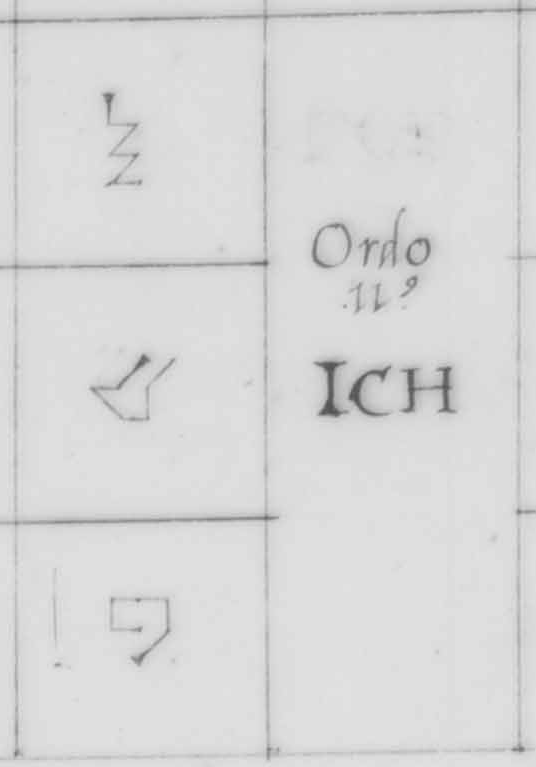 Ordo
.11.⁹
ICH